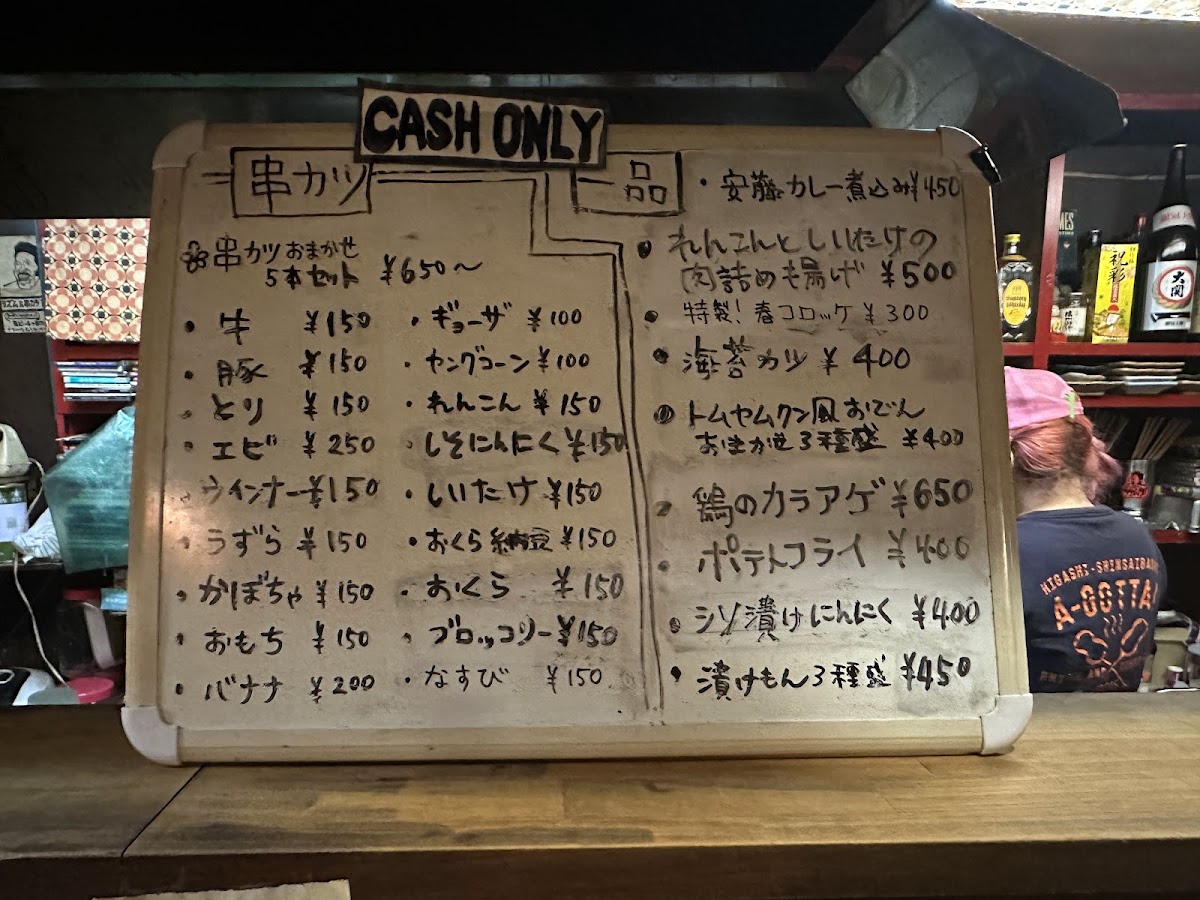 CASH ONLY
串カツ
串カツ おまかせ
5本セット ¥650〜
・牛 ¥150
・豚 ¥150
・とり ¥150
・エビ ¥250
・ウインナー ¥150
・うずら ¥150
・かぼちゃ ¥150
・おもち ¥150
・バナナ ¥200
・ギョーザ ¥100
・ヤングコーン ¥100
・れんこん ¥150
・しそにんにく ¥150
・しいたけ ¥150
・おくら納豆 ¥150
・おくら ¥150
・ブロッコリー ¥150
・なすび ¥150
一品
・安藤カレー煮込み ¥450
・れんこんとしいたけの
肉詰めも揚げ ¥500
・特製!春コロッケ ¥300
・海苔カツ ¥400
・トムヤムクン風おでん
おまかせ3種盛 ¥400
・鶏のカラアゲ ¥650
・ポテトフライ ¥400
・シソ漬けにんにく ¥400
・漬けもん3種盛 ¥450
祝彩
大関
HIGASHI-SHINSAIBA
A-OTTA